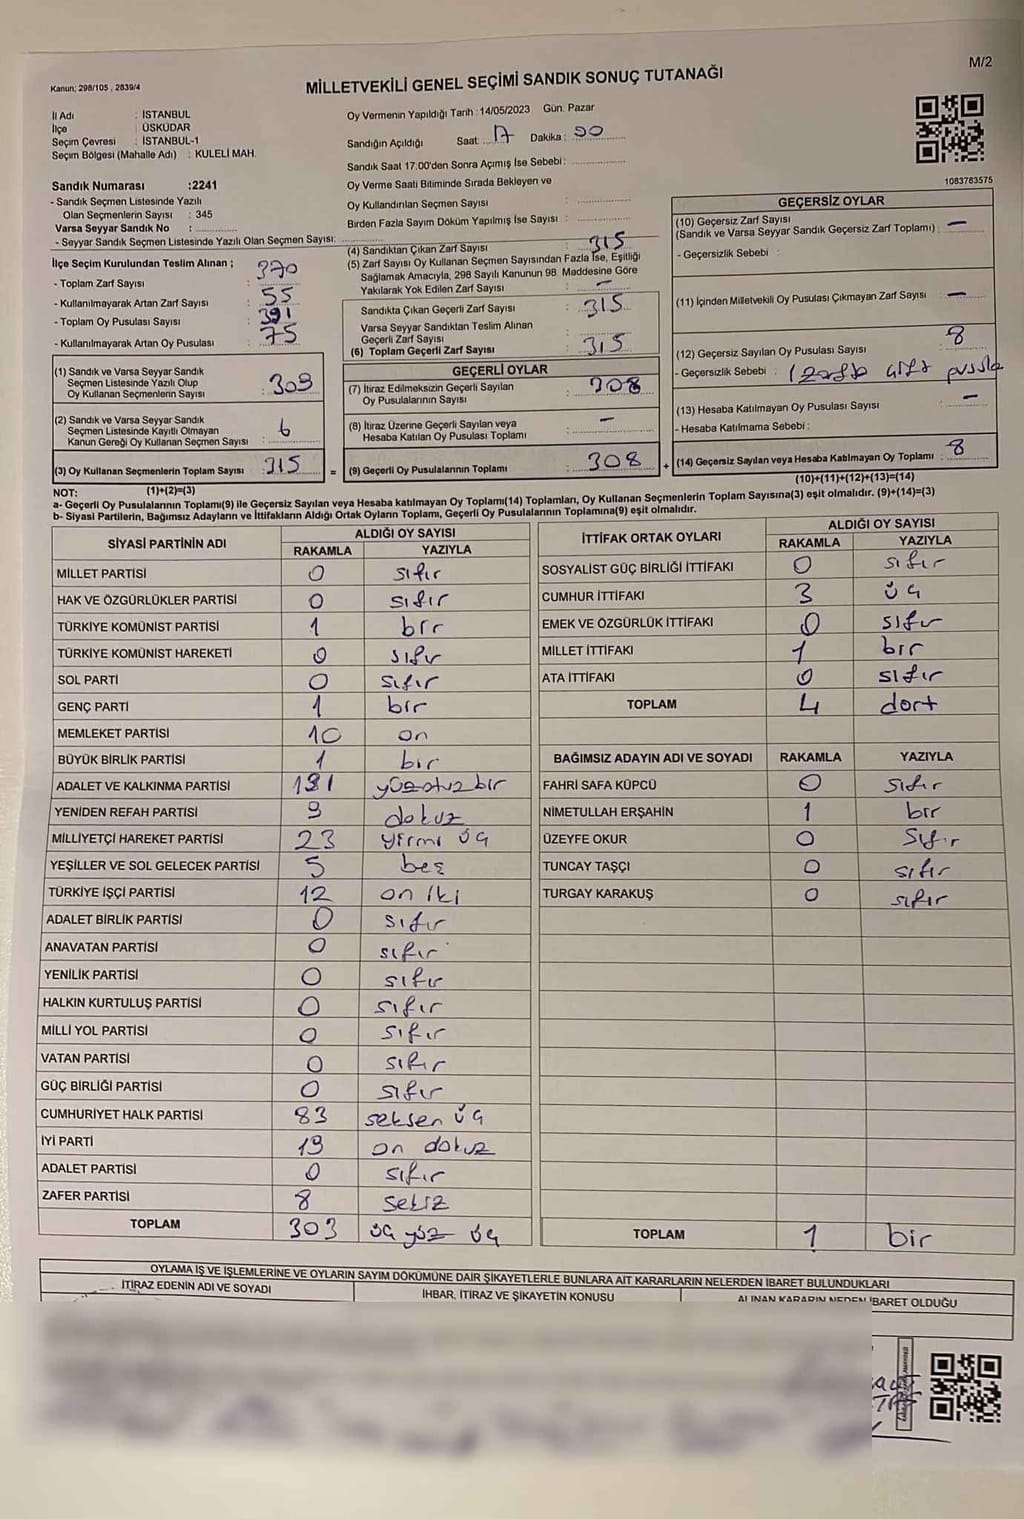 M/2
Kanun: 298/105 , 2839/4
MİLLETVEKİLİ GENEL SEÇİMİ SANDIK SONUÇ TUTANAĞI
İl Adı : İSTANBUL
İlçe : ÜSKÜDAR
Seçim Çevresi : İSTANBUL-1
Seçim Bölgesi (Mahalle Adı) : KULELİ MAH.
Sandık Numarası :2241
- Sandık Seçmen Listesinde Yazılı
Olan Seçmenlerin Sayısı : 345
Varsa Seyyar Sandık No :
- Seyyar Sandık Seçmen Listesinde Yazılı Olan Seçmen Sayısı:
Oy Vermenin Yapıldığı Tarih :14/05/2023 Gün. Pazar
Sandığın Açıldığı Saat: 17 Dakika : 00
Sandık Saat 17:00'den Sonra Açımış İse Sebebi :
Oy Verme Saati Bitiminde Sırada Bekleyen ve
Oy Kullandırılan Seçmen Sayısı :
Birden Fazla Sayım Döküm Yapılmış İse Sayısı :
1083783575
İlçe Seçim Kurulundan Teslim Alınan ;
- Toplam Zarf Sayısı : 370
- Kullanılmayarak Artan Zarf Sayısı : 55
- Toplam Oy Pusulası Sayısı : 391
- Kullanılmayarak Artan Oy Pusulası : 75
(1) Sandık ve Varsa Seyyar Sandık
Seçmen Listesinde Yazılı Olup
Oy Kullanan Seçmenlerin Sayısı : 309
(2) Sandık ve Varsa Seyyar Sandık
Seçmen Listesinde Kayıtlı Olmayan
Kanun Gereği Oy Kullanan Seçmen Sayısı : 6
(3) Oy Kullanan Seçmenlerin Toplam Sayısı : 315 =
(1)+(2)=(3)
(4) Sandıktan Çıkan Zarf Sayısı : 315
(5) Zarf Sayısı Oy Kullanan Seçmen Sayısından Fazla İse, Eşitliği
Sağlamak Amacıyla, 298 Sayılı Kanunun 98. Maddesine Göre
Yakılarak Yok Edilen Zarf Sayısı : –
Sandıkta Çıkan Geçerli Zarf Sayısı : 315
Varsa Seyyar Sandıktan Teslim Alınan
Geçerli Zarf Sayısı :
(6) Toplam Geçerli Zarf Sayısı : 315
GEÇERLİ OYLAR
(7) İtiraz Edilmeksizin Geçerli Sayılan
Oy Pusulalarının Sayısı : 308
(8) İtiraz Üzerine Geçerli Sayılan veya
Hesaba Katılan Oy Pusulası Toplamı : –
(9) Geçerli Oy Pusulalarının Toplamı : 308 +
GEÇERSİZ OYLAR
(10) Geçersiz Zarf Sayısı
(Sandık ve Varsa Seyyar Sandık Geçersiz Zarf Toplamı) : –
- Geçersizlik Sebebi :
(11) İçinden Milletvekili Oy Pusulası Çıkmayan Zarf Sayısı : –
(12) Geçersiz Sayılan Oy Pusulası Sayısı : 8
- Geçersizlik Sebebi : 1 zarfta çift pusula
(13) Hesaba Katılmayan Oy Pusulası Sayısı : –
- Hesaba Katılmama Sebebi :
(14) Geçersiz Sayılan veya Hesaba Katılmayan Oy Toplamı : 8
(10)+(11)+(12)+(13)=(14)
NOT:
a- Geçerli Oy Pusulaları Toplamı(9) ile Geçersiz Sayılan veya Hesaba katılmayan Oy Toplamı(14) Toplamları, Oy Kullanan Seçmenlerin Toplam Sayısına(3) eşit olmalıdır. (9)+(14)=(3)
b- Siyasi Partilerin, Bağımsız Adayların ve İttifakların Aldığı Ortak Oyların Toplamı, Geçerli Oy Pusulalarının Toplamına(9) eşit olmalıdır.
SİYASİ PARTİNİN ADI ALDIĞI OY SAYISI
RAKAMLA YAZIYLA
MİLLET PARTİSİ 0 sıfır
HAK VE ÖZGÜRLÜKLER PARTİSİ 0 sıfır
TÜRKİYE KOMÜNİST PARTİSİ 1 bir
TÜRKİYE KOMÜNİST HAREKETİ 0 sıfır
SOL PARTİ 0 sıfır
GENÇ PARTİ 1 bir
MEMLEKET PARTİSİ 10 on
BÜYÜK BİRLİK PARTİSİ 1 bir
ADALET VE KALKINMA PARTİSİ 131 yüzotuzbir
YENİDEN REFAH PARTİSİ 9 dokuz
MİLLİYETÇİ HAREKET PARTİSİ 23 yirmi üç
YEŞİLLER VE SOL GELECEK PARTİSİ 5 beş
TÜRKİYE İŞÇİ PARTİSİ 12 on iki
ADALET BİRLİK PARTİSİ 0 sıfır
ANAVATAN PARTİSİ 0 sıfır
YENİLİK PARTİSİ 0 sıfır
HALKIN KURTULUŞ PARTİSİ 0 sıfır
MİLLİ YOL PARTİSİ 0 sıfır
VATAN PARTİSİ 0 sıfır
GÜÇ BİRLİĞİ PARTİSİ 0 sıfır
CUMHURİYET HALK PARTİSİ 83 seksen üç
İYİ PARTİ 19 on dokuz
ADALET PARTİSİ 0 sıfır
ZAFER PARTİSİ 8 sekiz
TOPLAM 303 üç yüz üç
İTTİFAK ORTAK OYLARI ALDIĞI OY SAYISI
RAKAMLA YAZIYLA
SOSYALİST GÜÇ BİRLİĞİ İTTİFAKI 0 sıfır
CUMHUR İTTİFAKI 3 üç
EMEK VE ÖZGÜRLÜK İTTİFAKI 0 sıfır
MİLLET İTTİFAKI 1 bir
ATA İTTİFAKI 0 sıfır
TOPLAM 4 dört
BAĞIMSIZ ADAYIN ADI VE SOYADI RAKAMLA YAZIYLA
FAHRİ SAFA KÜPCÜ 0 sıfır
NİMETULLAH ERŞAHİN 1 bir
ÜZEYFE OKUR 0 sıfır
TUNCAY TAŞÇI 0 sıfır
TURGAY KARAKUŞ 0 sıfır
TOPLAM 1 bir
OYLAMA İŞ VE İŞLEMLERİNE VE OYLARIN SAYIM DÖKÜMÜNE DAİR ŞİKAYETLERLE BUNLARA AİT KARARLARIN NELERDEN İBARET BULUNDUKLARI
İTİRAZ EDENİN ADI VE SOYADI İHBAR, İTİRAZ VE ŞİKAYETİN KONUSU ALINAN KARARIN NEDEN İBARET OLDUĞU